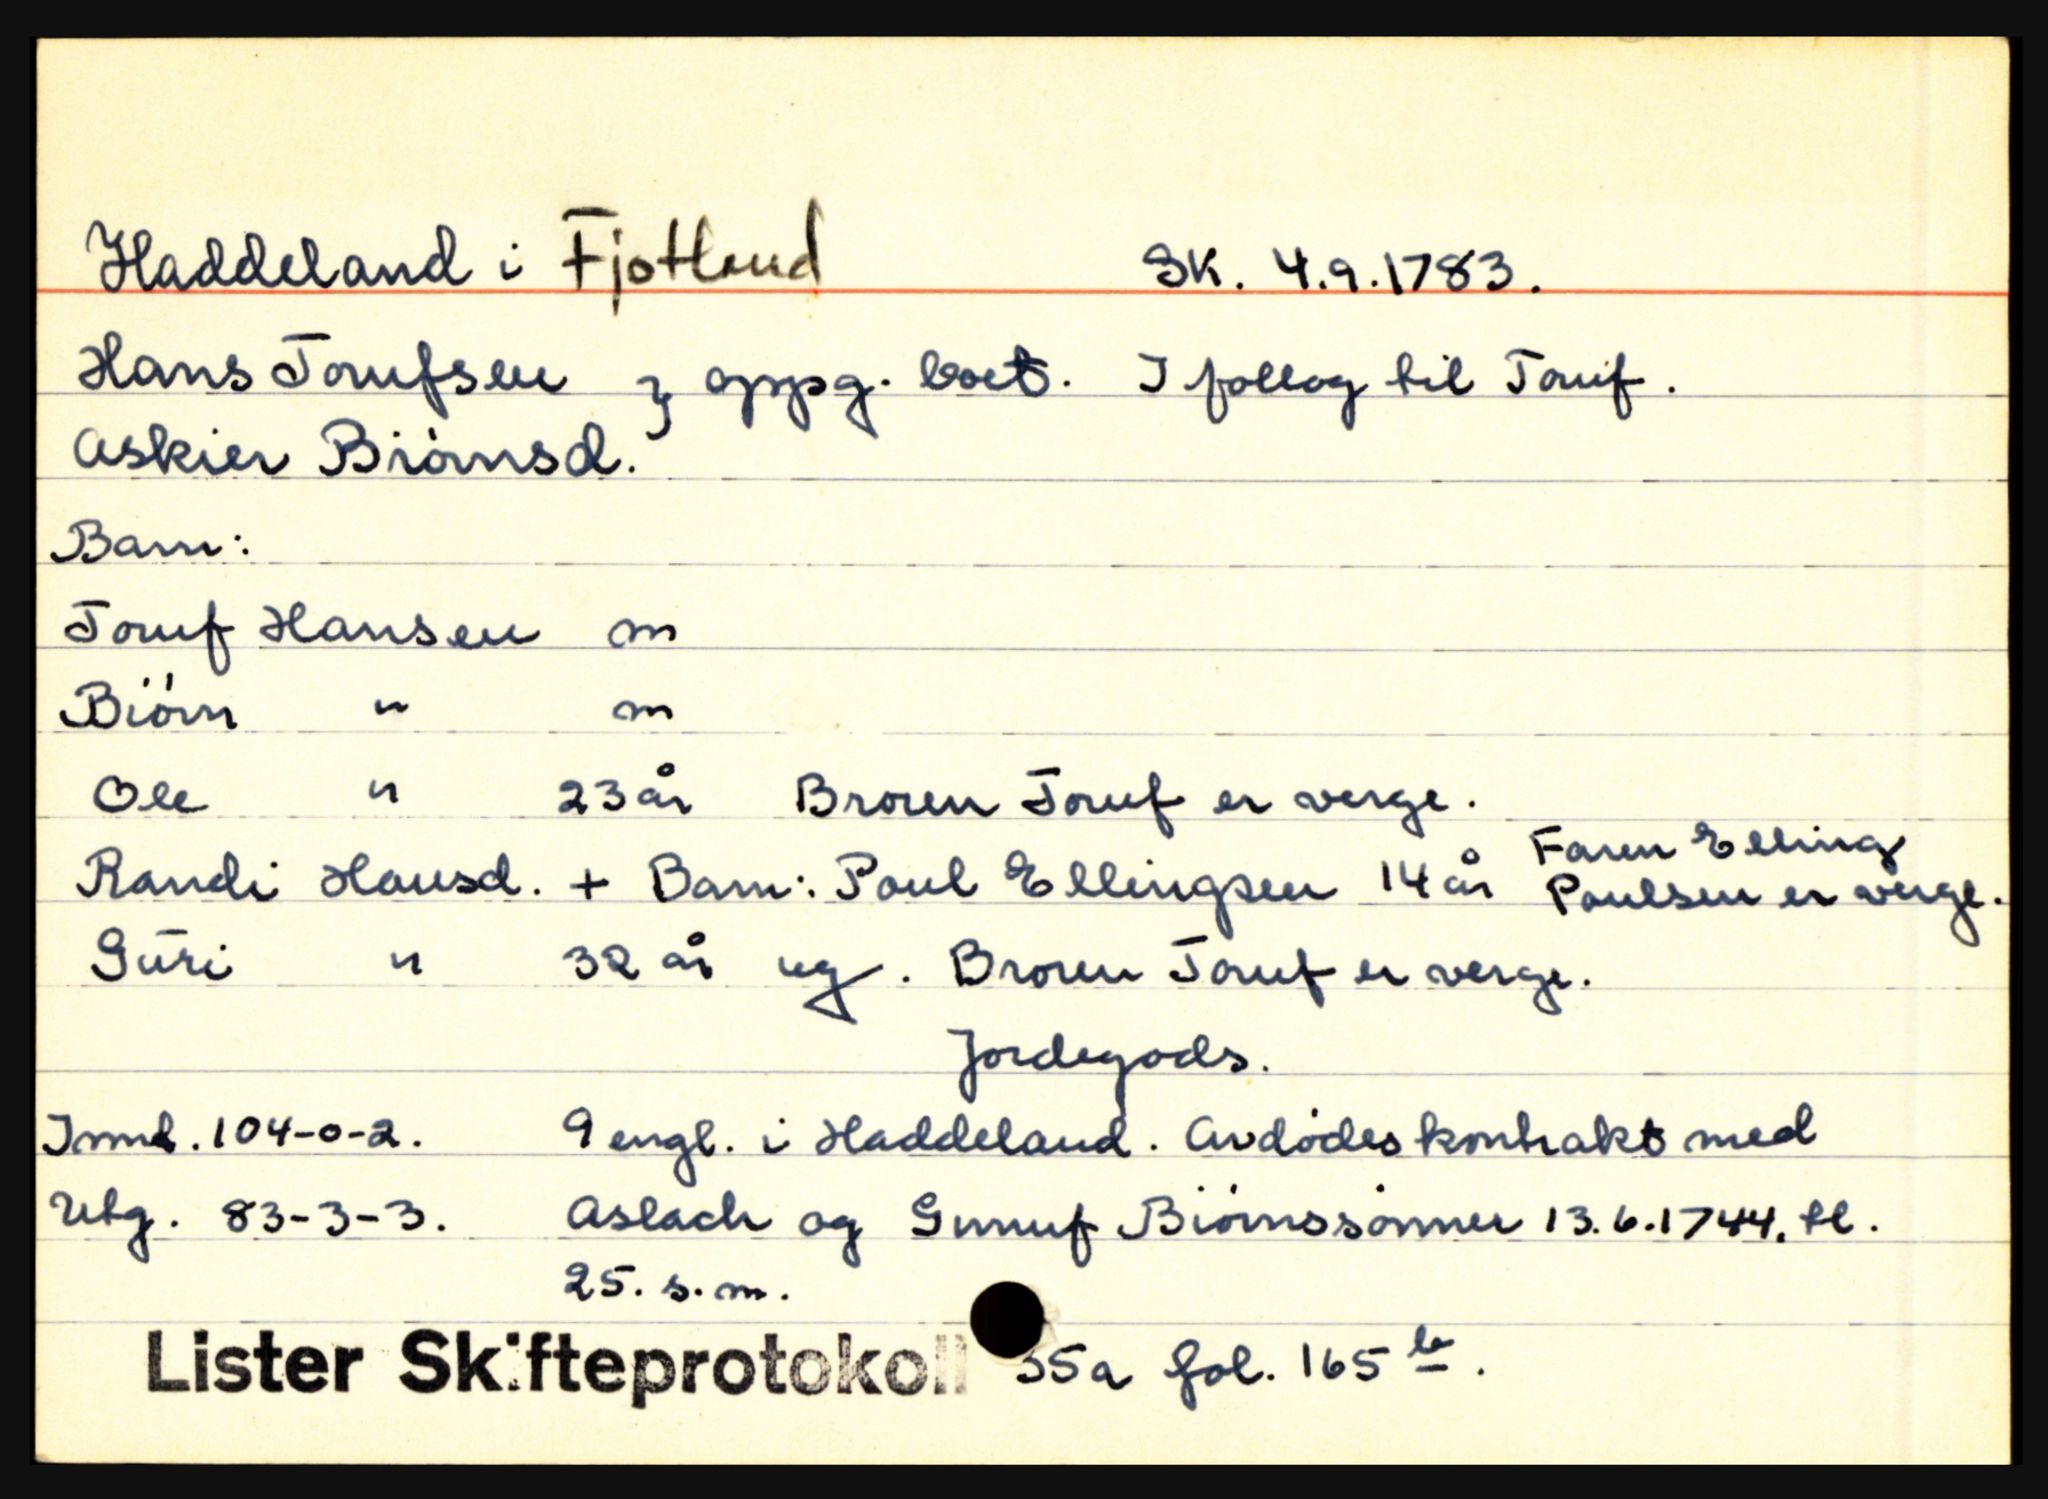 Haddeland i Fjotland Sk. 4.9.1783.
Hans Torufsen } oppg. boet. I follog til Toruf.
Askier Biørnsd.
Barn:
Toruf Hansen m
Biørn " m
Ole " 23 år Broren Toruf er verge.
Randi Hansd. + Barn: Poul Ellingsen 14 år Faren Elling Poulsen er verge.
Guri " 32 år ug. Broren Toruf er verge.
Jordegods.
Innt. 104-0-2. 9 engl. i Haddeland. Avdødes kontrakt med
Utg. 83-3-3. Aslach og Gunuf Biørnssønner 13.6.1744. tl.
25. s.m.
Lister Skifteprotokoll 35a fol. 165 b.